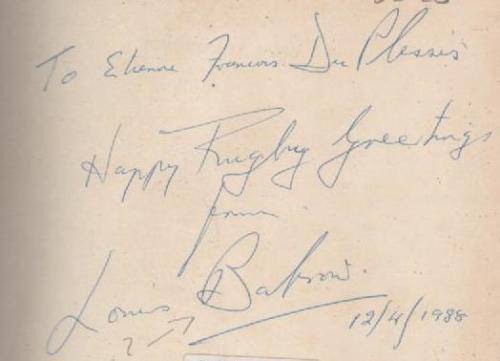 To Etienne Francois Du Plessis
Happy Rugby Greetings
from
Louis Babrow.
?
12/4/1988